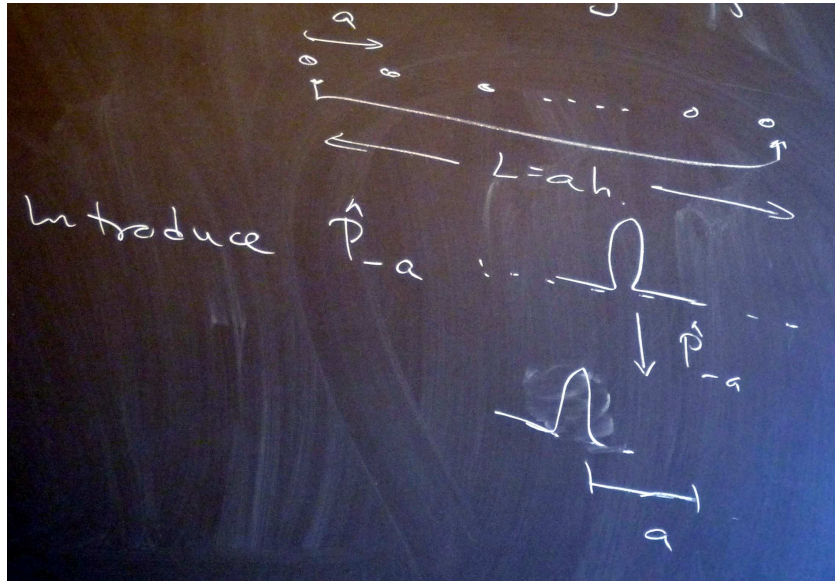 a
L = ah.
Introduce P̂₋ₐ
P̂₋ₐ
a